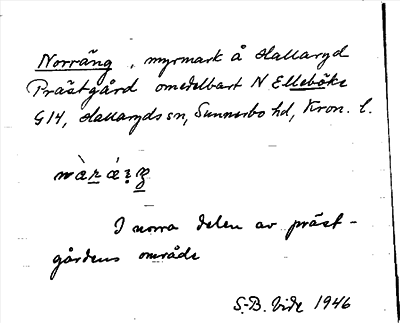 Norräng, myrmark å Hallaryd
Prästgård omedelbart N Elleböke
G14, Hallaryds sn, Sunnerbo hd, Kron. l.
I norra delen av präst-
gårdens område
S.-B. Vide 1946